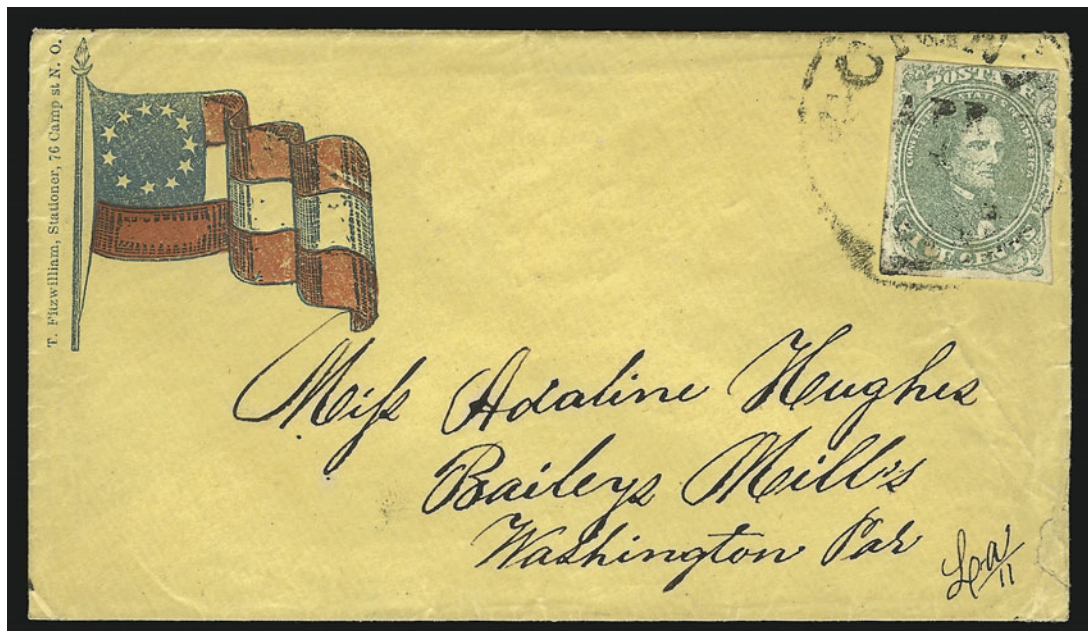 T. Fitzwilliam, Stationer, 76 Camp st N. O.
POSTAGE
CONFEDERATE STATES OF AMERICA
APR
FIVE CENTS
Miſs Adaline Hughes
Baileys Mill's
Washington Par
La/11